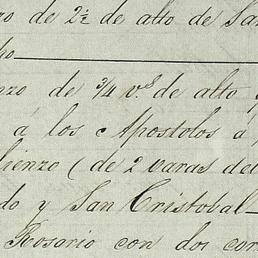 ro de 2½ de alto de San
ho
nzo de 3/4 v.s de alto y
á los Apostolos á
lienzo (de 2 varas de
do y San Cristobal
Rosario con dos cor